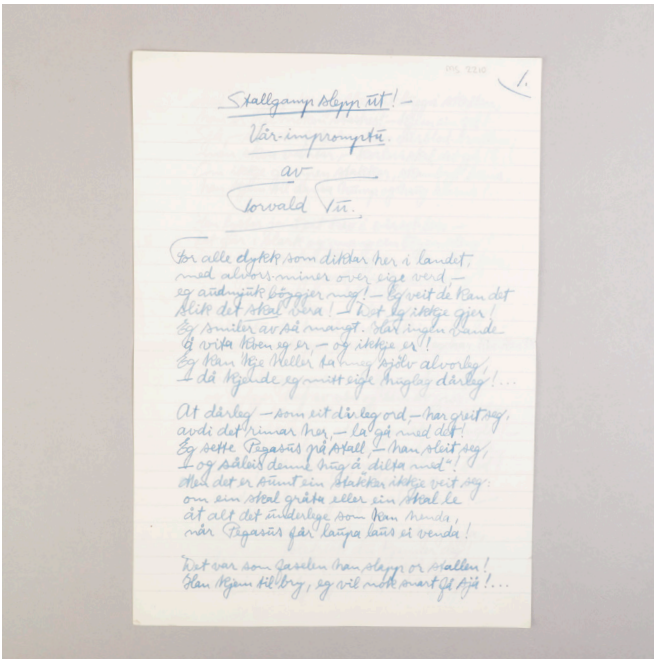 Ms. 2210
1.
Stallgamp slepp ut! -
Vår-impromptu.
av
Torvald Tu.
For alle dykk som diktar her i landet,
med alvors-miner over eige verd, -
eg audmjuk bøygjer meg! - Eg veit de kan det
slik det skal vera! - Det eg ikkje gjer!
Eg smiler av så mangt. Har ingen vande
å vita kven eg er, - og ikkje er!
Eg kan kje heller ta meg sjølv alvorleg,
- då kjende eg mitt eige huglag dårleg! ...
At dårleg - som eit dårleg ord, - har greitt seg,
avdi det rimar her, - la gå med det!
Eg sette Pegasus på stall, - han sleit seg,
- og såleis denne hug å dilta med"!
Men det er sumt ein stakkar ikkje veit seg:
om ein skal gråta eller ein skal le
åt alt det underlege som kan henda,
når Pegasus får laupa laus ei venda!
Det var som faselen han slapp or stallen!
Han kjem til bry, eg vil nok snart få sjå! ...